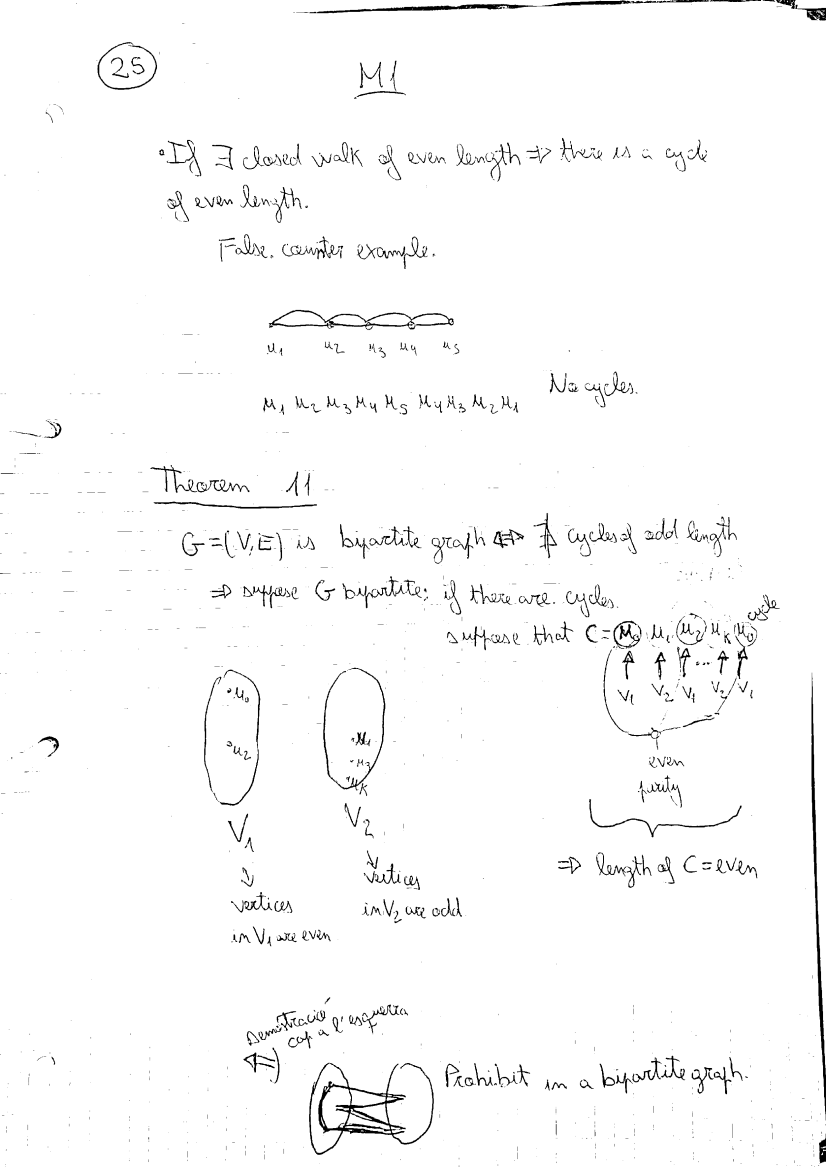 25
M1
• If ∃ closed walk of even length ⇒ there is a cycle
of even length.
False. counter example.
u1 u2 u3 u4 u5
u1 u2 u3 u4 u5 u4 u3 u2 u1 No cycles.
Theorem 11
G=(V,E) is bipartite graph ⇔ ∄ cycles of odd length
⇒ suppose G bipartite; if there are cycles.
suppose that C = u0 u1 u2 uk u0 cycle
V1 V2 V1 ... V2 V1
u0
u2
u1
u3
uk
even
parity
V1
V2
⇒ length of C = even
vertices
in V1 are even
vertices
in V2 are odd
Demostració
cap a l'esquerra
⇐)
Prohibit in a bipartite graph.